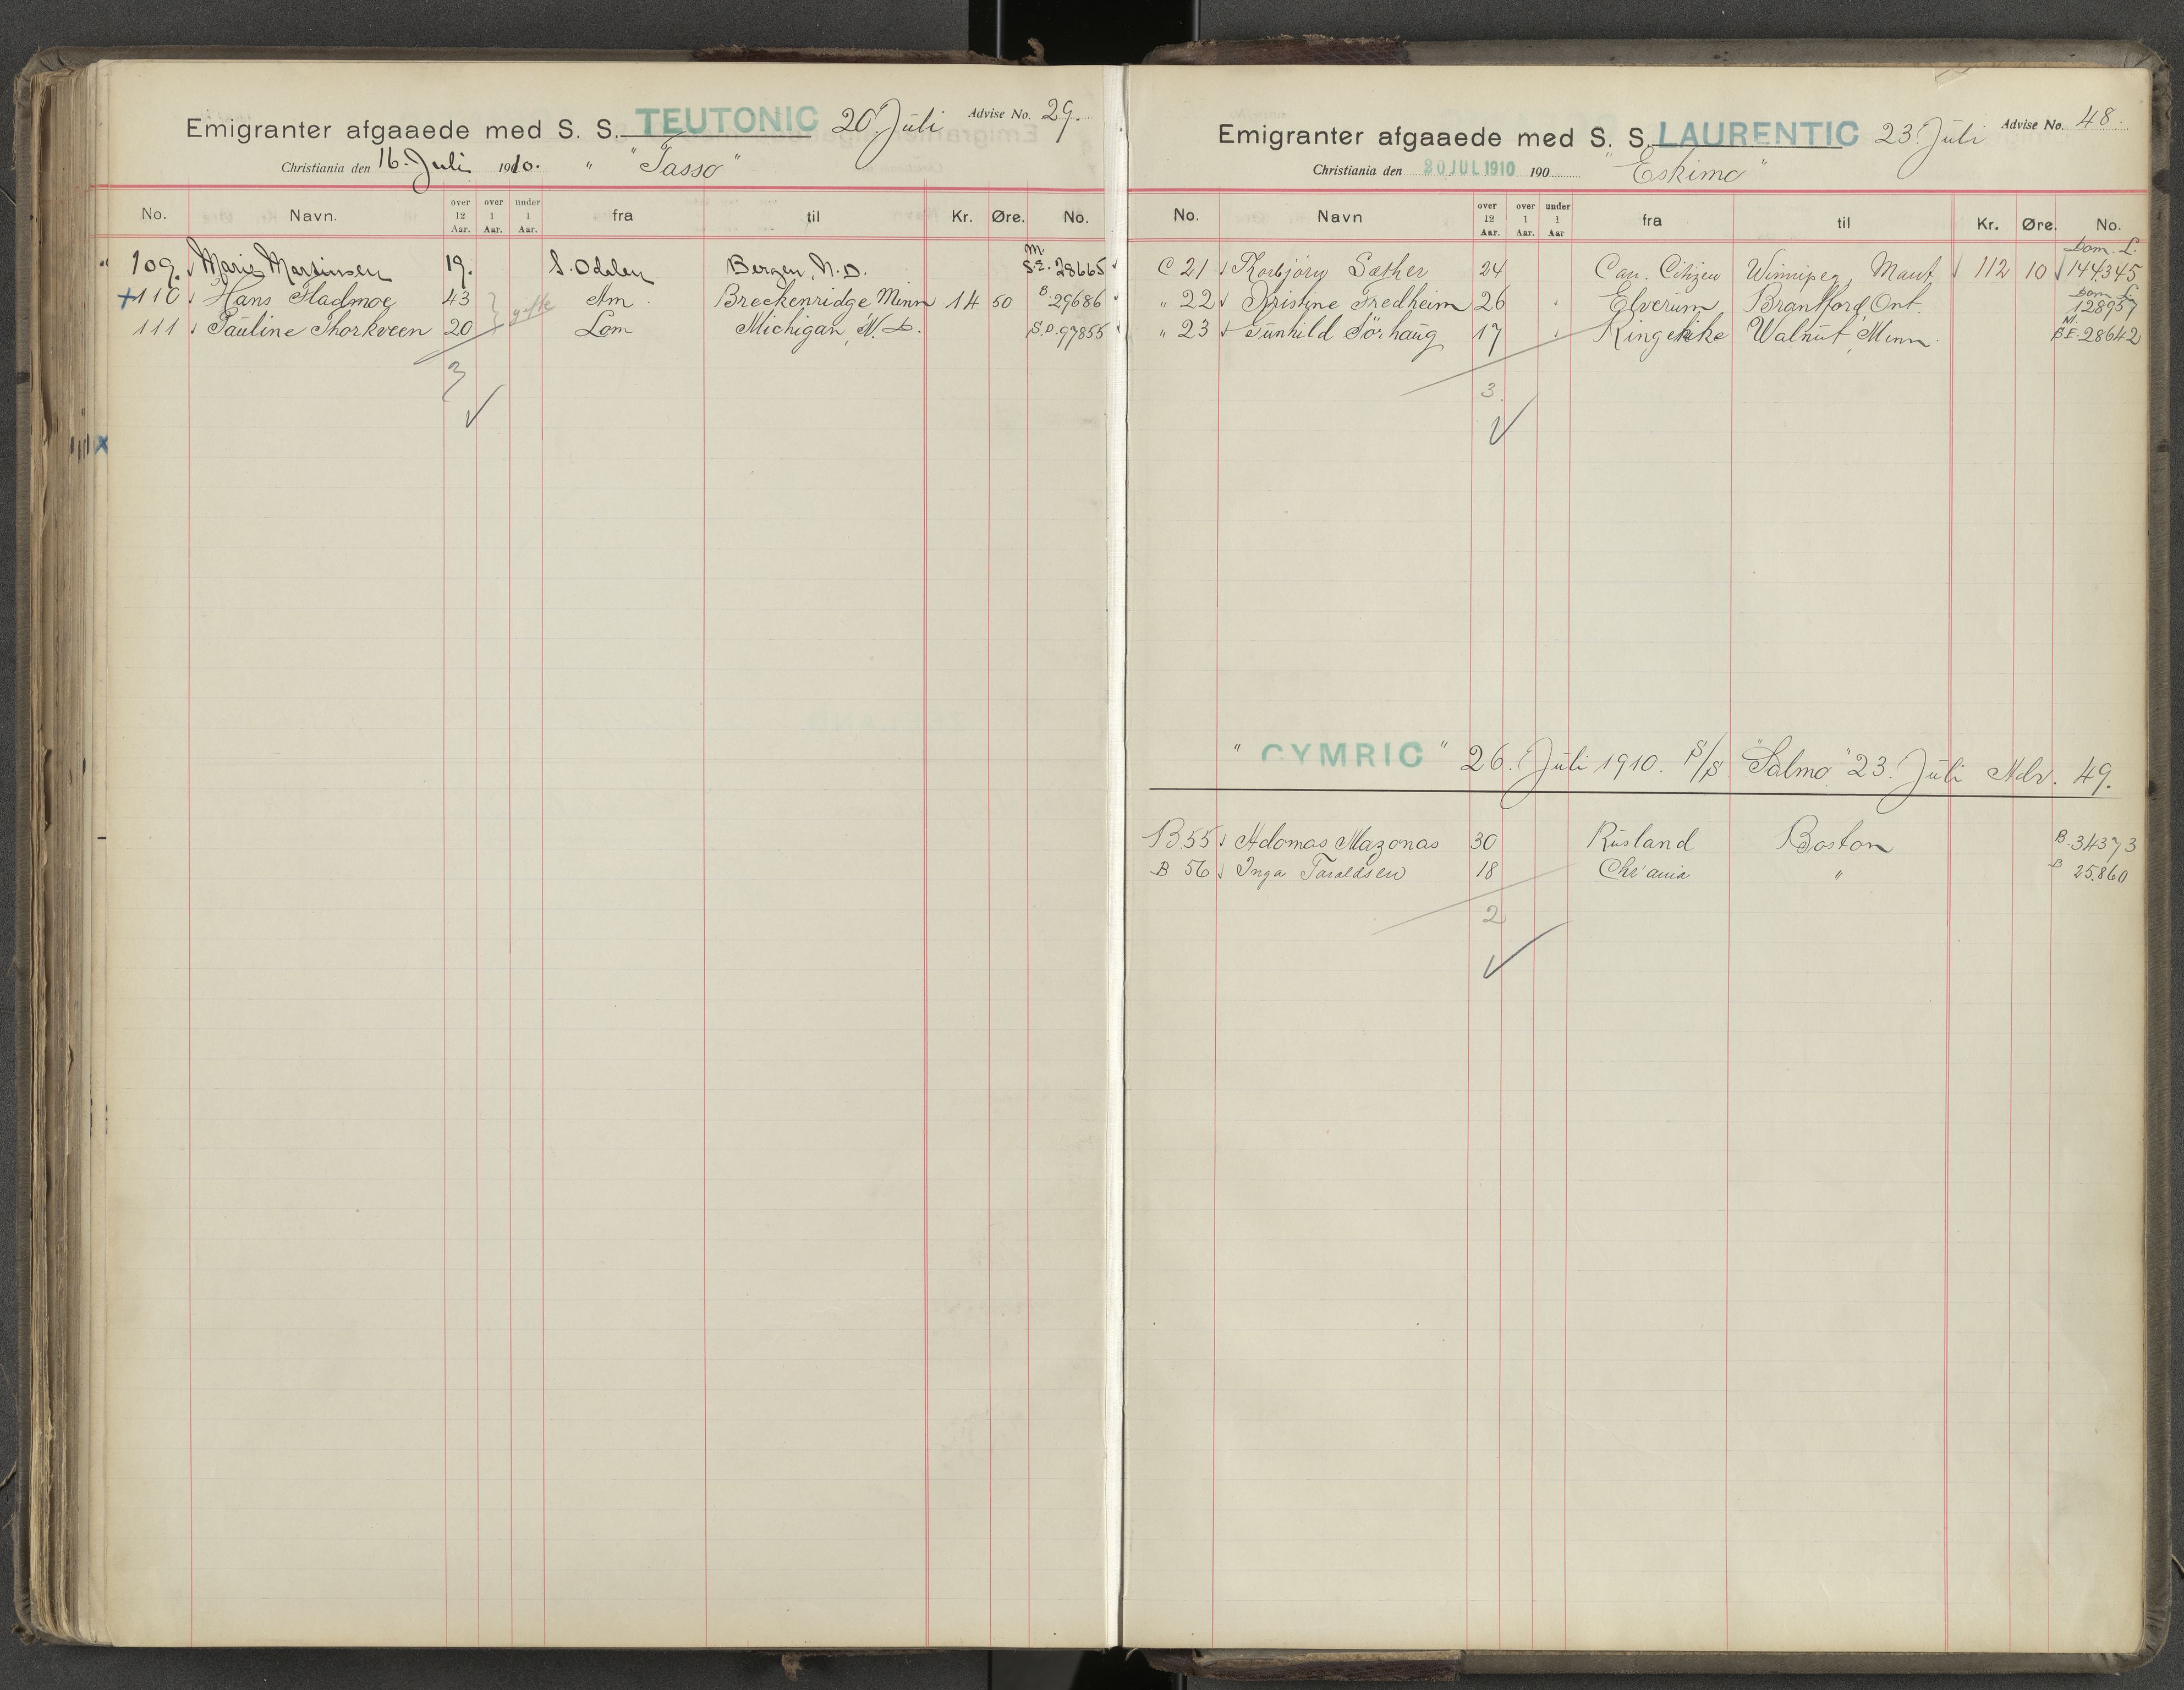 Emigranter afgaaede med S. S. TEUTONIC 20. Juli Advise No. 29.
Christiania den 16. Juli 1910. " "Tasso"
No. Navn. over 12 Aar. over 1 Aar. under 1 Aar. fra til Kr. Øre. No.
" 109. Marie Martinsen 19. S. Odalen Bergen, N.D. M. S.E. 28665
+110 Hans Hadmoe 43 gifte Am. Breckenridge Minn 14 50 B 29686
111 Pauline Thorkveen 20 Lom Michigan, N.D. S.D. 97855
3
Emigranter afgaaede med S. S. LAURENTIC 23. Juli Advise No. 48.
Christiania den 20 JUL 1910 190 "Eskimo"
No. Navn over 12 Aar. over 1 Aar. under 1 Aar fra til Kr. Øre. No.
C 21 Thorbjörn Sæther 24 Can. Citizen Winnipeg, 112 10 Dom. L. 144345
" 22 Kristine Fredheim 26 Elverum Brantford, Ont. Dom. L. 128957
" 23 Gunhild Sörhaug 17 Walnut, Minn. M. B.E. 28642
3
" CYMRIC " 26. Juli 1910. S/S "Salmo" 23. Juli Adv. 49.
B 55 Adomas Mazonas 30 Rusland Boston B. 34373
B 56 Inga Taraldsen 18 Chr'ania " B 25860
2